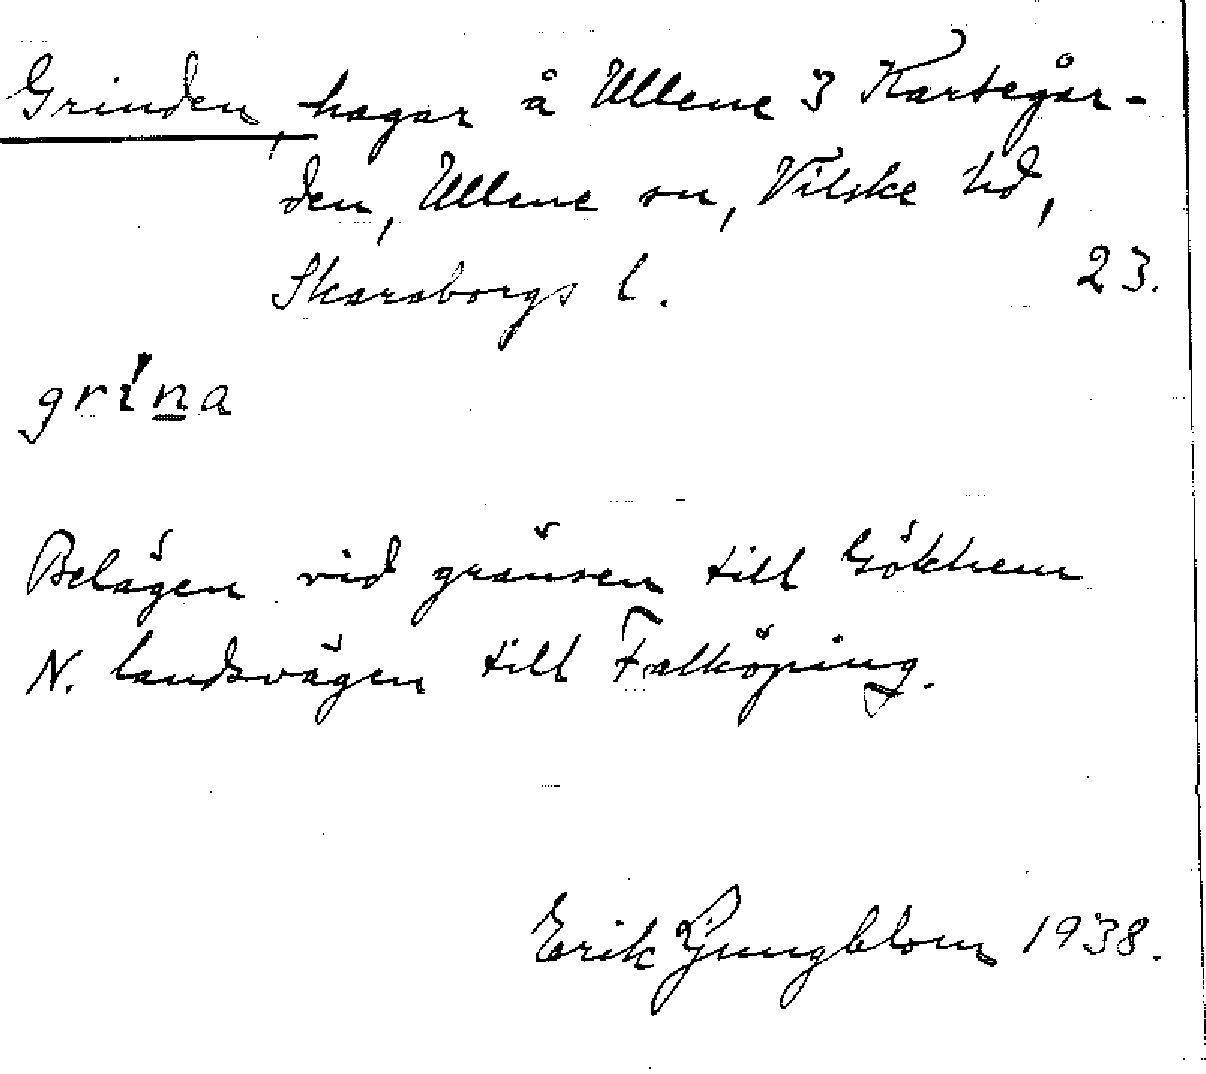 Grinden, hagar å Ullene 3 Kartegår-
den, Ullene sn, Vilske hd,
Skaraborgs l. 23.
grina
Belägen vid gränsen till Gökhem
N. landsvägen till Falköping.
Erik Ljungblom 1938.